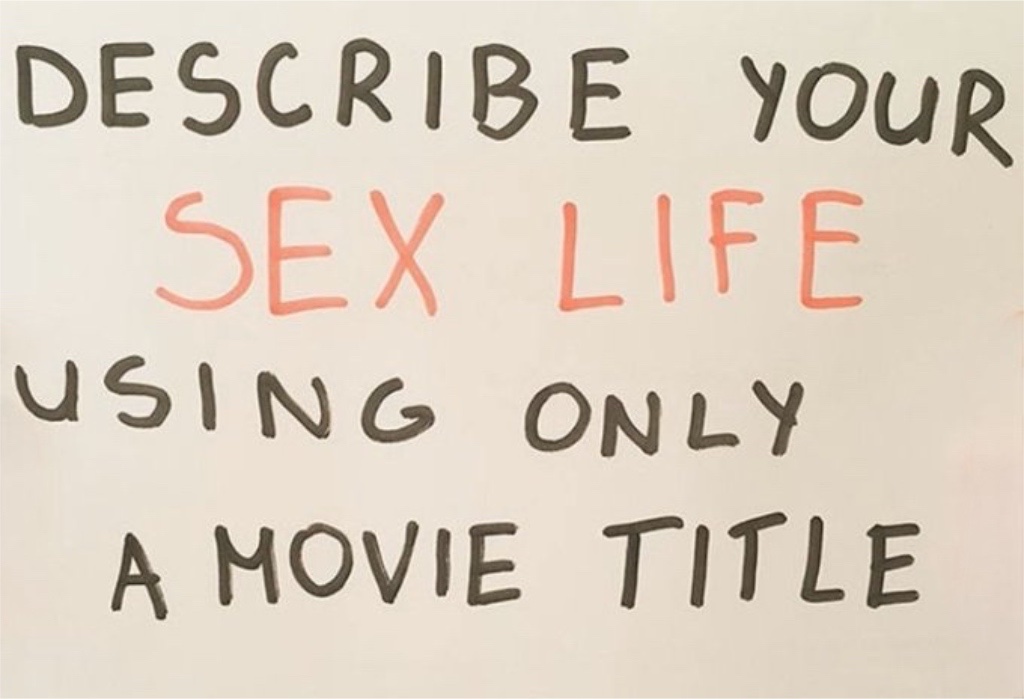 DESCRIBE YOUR
SEX LIFE
USING ONLY
A MOVIE TITLE